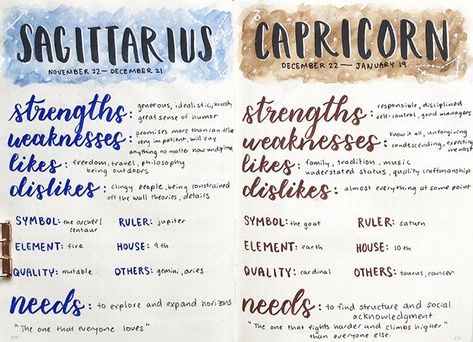 SAGITTARIUS
NOVEMBER 22 — DECEMBER 21
strengths: generous, idealistic,
great sense of humor
weaknesses: promises more than can deliver
very impatient, will say
anything no matter how undiplomatic
likes: freedom, travel, philosophy
being outdoors
dislikes: clingy people, being constrained
off the wall theories, details
SYMBOL: the archer/
centaur
RULER: jupiter
ELEMENT: fire
HOUSE: 9th
QUALITY: mutable
OTHERS: gemini, aries
needs: to explore and expand horizons
"The one that everyone loves"
CAPRICORN
DECEMBER 22 — JANUARY 19
strengths: responsible, disciplined
self-control, good managers
weaknesses: know it all, unforgiving
condescending, expecting
the worst
likes: family, tradition, music
understated status, quality craftmanship
dislikes: almost everything at some point
SYMBOL: the goat
RULER: saturn
ELEMENT: earth
HOUSE: 10th
QUALITY: cardinal
OTHERS: taurus, cancer
needs: to find structure and social
acknowledgment
"The one that fights harder and climbs higher
than everyone else."